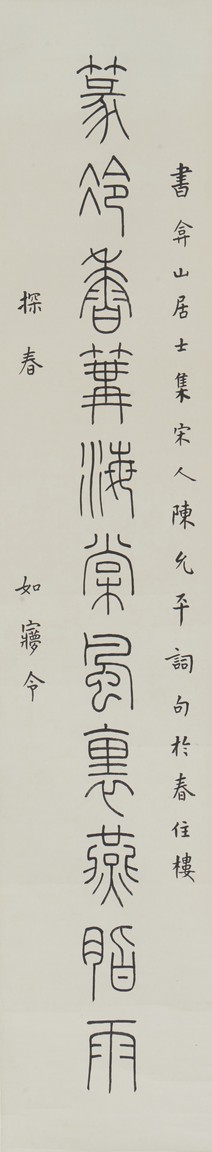 書弇山居士集宋人陳允平詞句於春住樓
篆冷香篝海棠風裏燕脂雨
探春　如㝱令